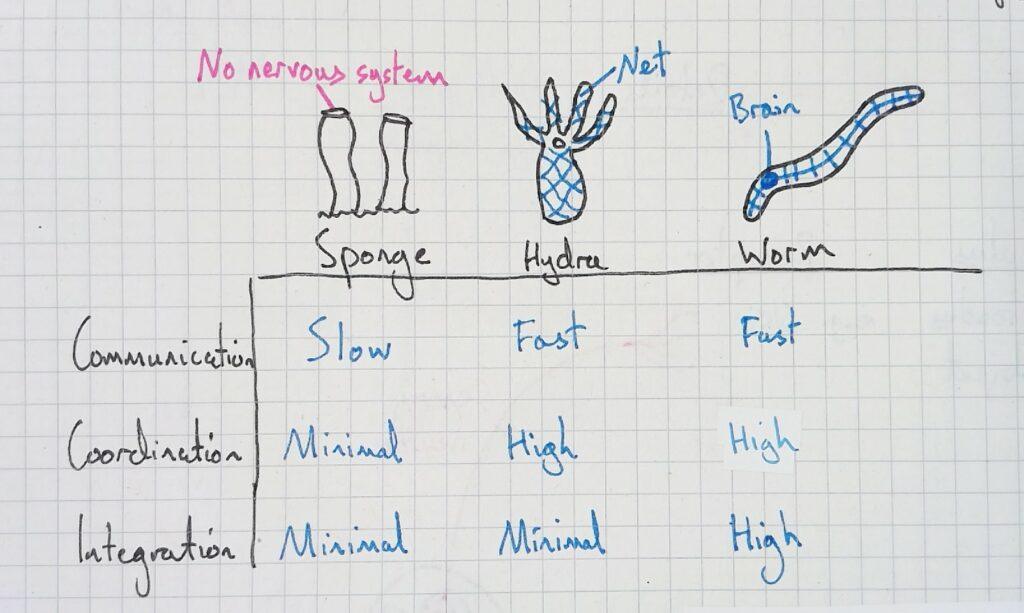 No nervous system
Net
Brain
Sponge Hydra Worm
Communication Slow Fast Fast
Coordination Minimal High High
Integration Minimal Minimal High